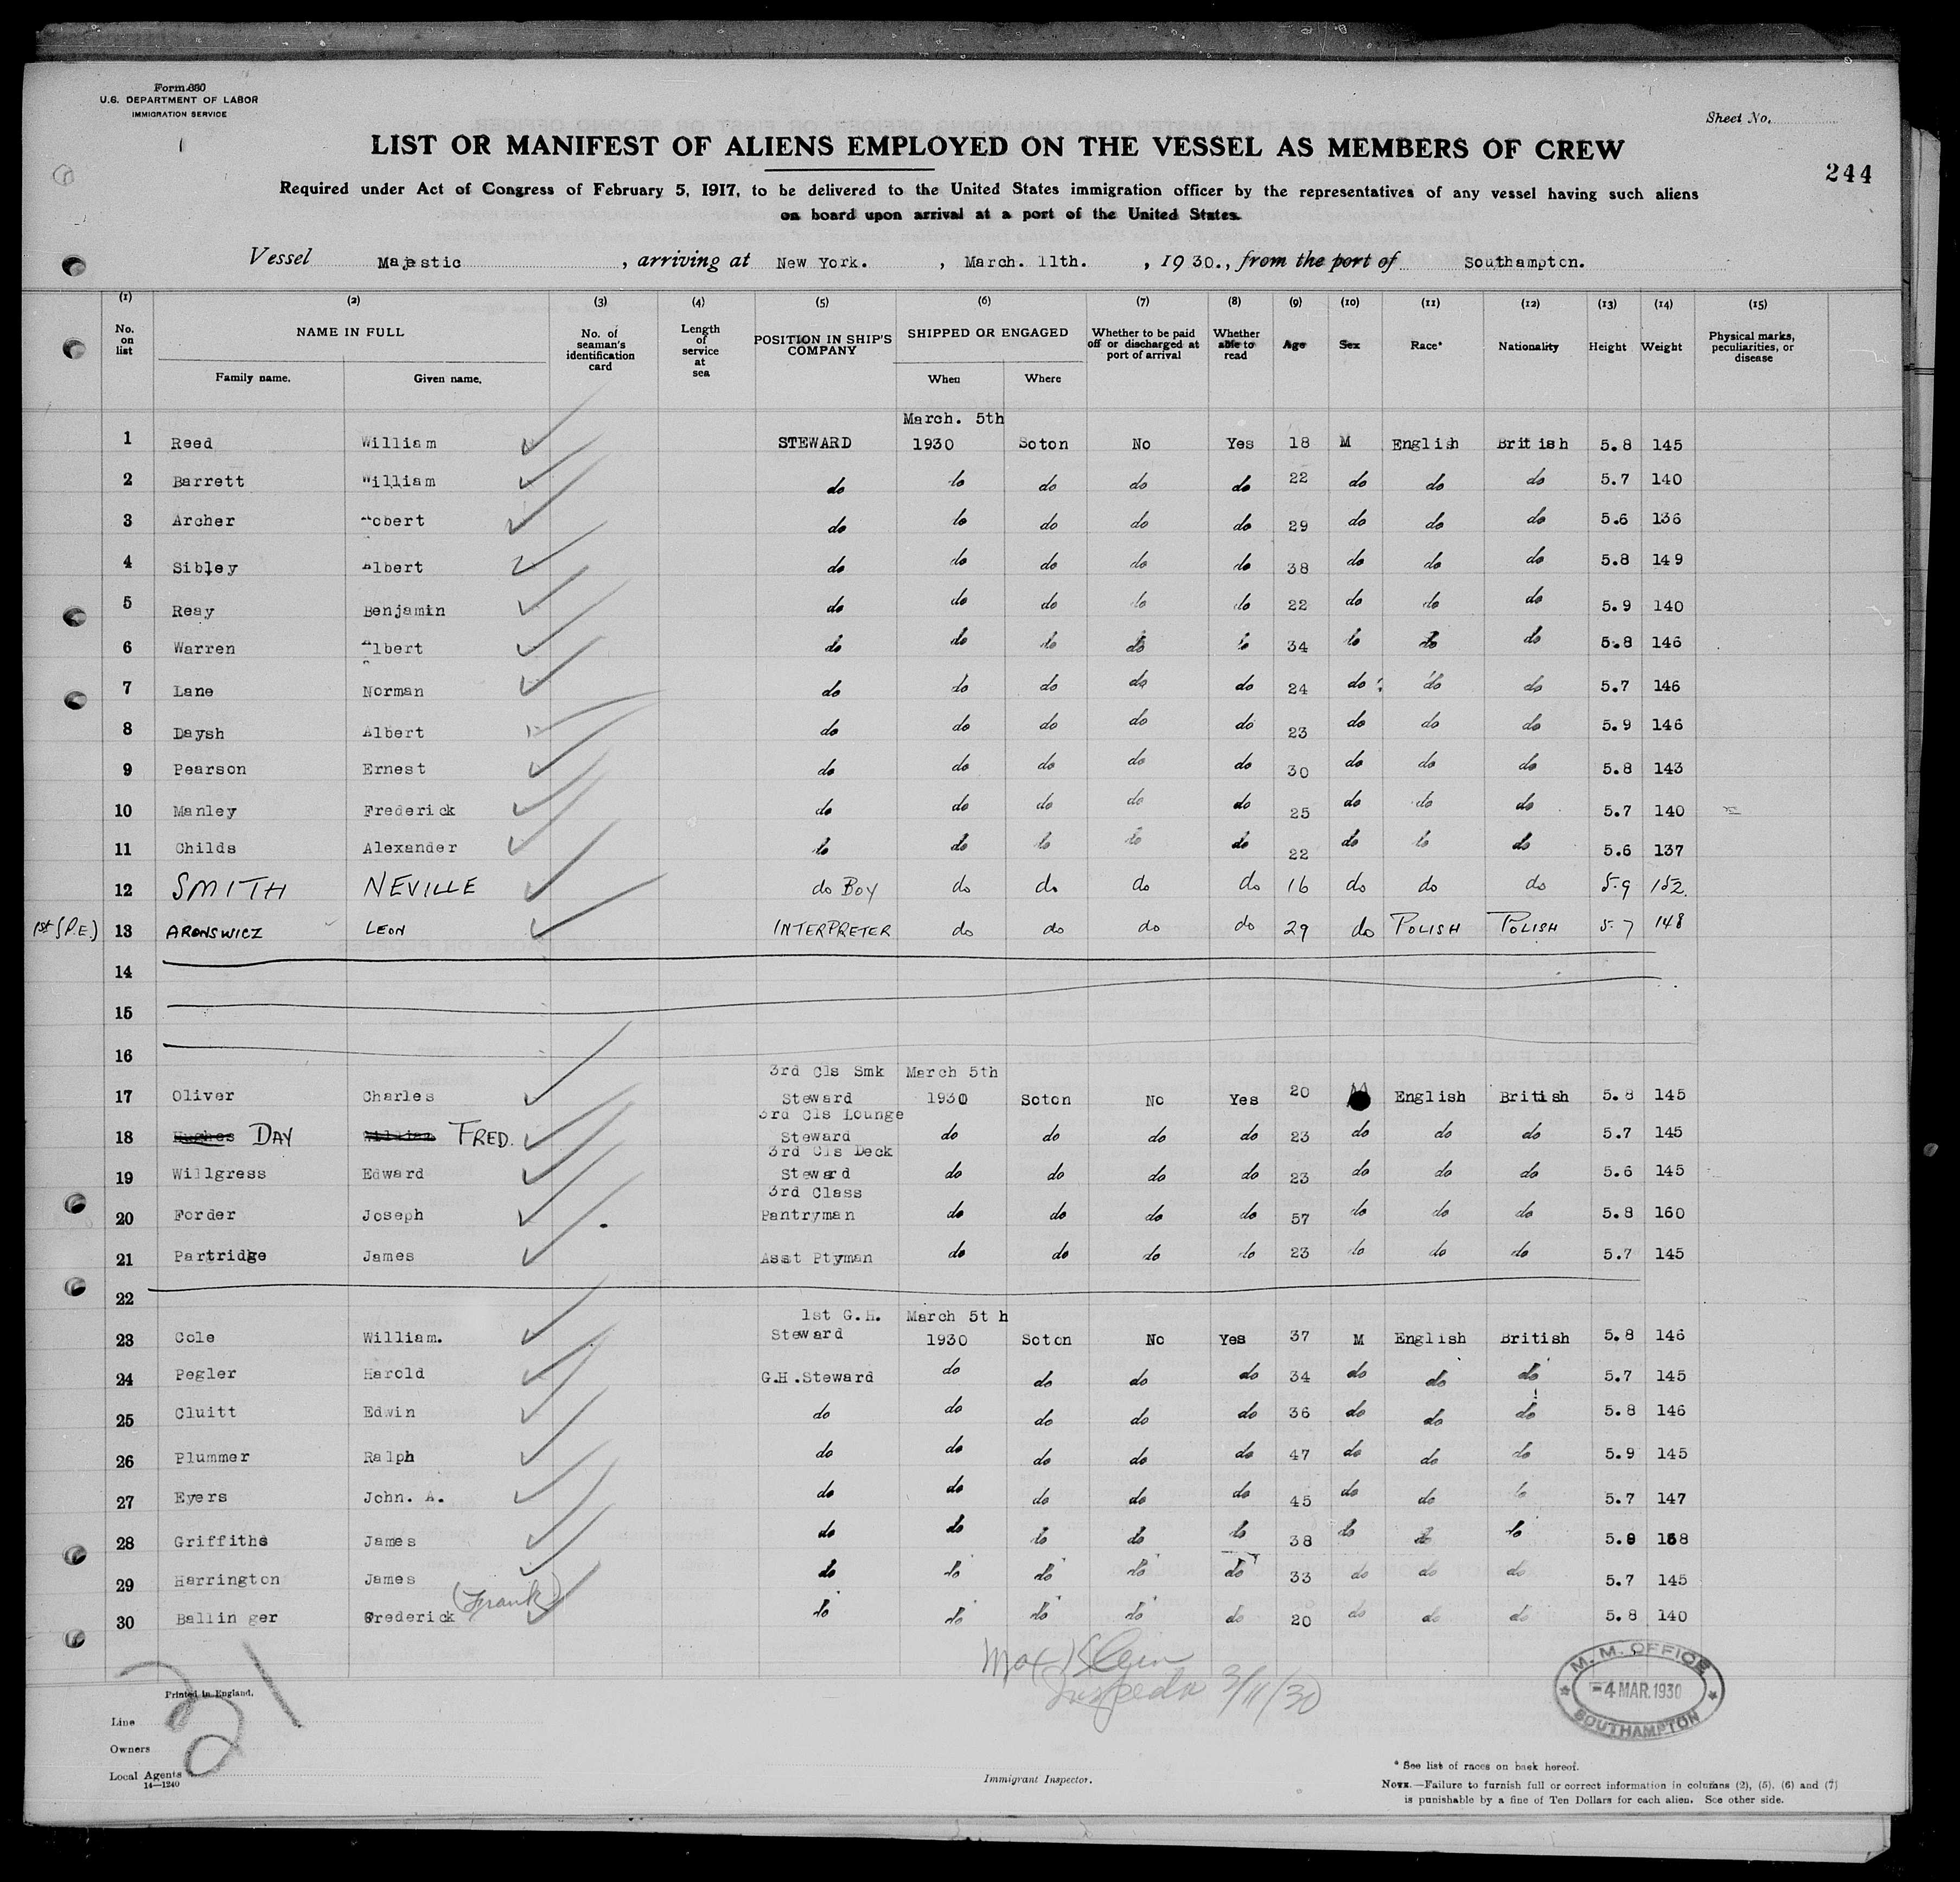 Form 680
U.S. DEPARTMENT OF LABOR
IMMIGRATION SERVICE
Sheet No.
LIST OR MANIFEST OF ALIENS EMPLOYED ON THE VESSEL AS MEMBERS OF CREW
244
Required under Act of Congress of February 5, 1917, to be delivered to the United States immigration officer by the representatives of any vessel having such aliens
on board upon arrival at a port of the United States.
Vessel Majestic, arriving at New York. , March. 11th. , 1930., from the port of Southampton.
(1) (2) (3) (4) (5) (6) (7) (8) (9) (10) (11) (12) (13) (14) (15)
No. on list NAME IN FULL No. of seaman's identification card Length of service at sea POSITION IN SHIP'S COMPANY SHIPPED OR ENGAGED Whether to be paid off or discharged at port of arrival Whether able to read Age Sex Race* Nationality Height Weight Physical marks, peculiarities, or disease
Family name. Given name. When Where
March. 5th
1 Reed William STEWARD 1930 Soton No Yes 18 M English British 5.8 145
2 Barrett William do do do do do 22 do do do 5.7 140
3 Archer Robert do do do do do 29 do do do 5.6 136
4 Sibley Albert do do do do do 38 do do do 5.8 149
5 Reay Benjamin do do do do do 22 do do do 5.9 140
6 Warren Albert do do do do do 34 do do do 5.8 146
7 Lane Norman do do do do do 24 do do do 5.7 146
8 Daysh Albert do do do do do 23 do do do 5.9 146
9 Pearson Ernest do do do do do 30 do do do 5.8 143
10 Manley Frederick do do do do do 25 do do do 5.7 140
11 Childs Alexander do do do do do 22 do do do 5.6 137
12 SMITH NEVILLE do BOY do do do do 16 do do do 5.9 152.
1st (P.E.) 13 ARONSWICZ LEON INTERPRETER do do do do 29 do POLISH POLISH 5.7 148
14
15
16
3rd Cls Smk March 5th
17 Oliver Charles Steward 1930 Soton No Yes 20 M English British 5.8 145
3rd Cls Lounge
18 Hughes DAY William FRED. Steward do do do do 23 do do do 5.7 145
3rd Cls Deck
19 Willgress Edward Steward do do do do 23 do do do 5.6 145
3rd Class
20 Forder Joseph Pantryman do do do do 57 do do do 5.8 160
21 Partridge James Asst Ptyman do do do do 23 do do do 5.7 145
22
1st G.H. March 5t h
23 Cole William. Steward 1930 Soton No Yes 37 M English British 5.8 146
24 Pegler Harold G.H.Steward do do do do 34 do do do 5.7 145
25 Cluitt Edwin do do do do do 36 do do do 5.8 146
26 Plummer Ralph do do do do do 47 do do do 5.9 145
27 Eyers John. A. do do do do do 45 do do do 5.7 147
28 Griffiths James do do do do do 38 do do do 5.9 158
29 Harrington James do do do do do 33 do do do 5.7 145
30 Ballin ger Frederick (Frank) do do do do do 20 do do do 5.8 140
Max Klein
Inspector 3/11/30
21
M. M. OFFICE
-4 MAR. 1930
SOUTHAMPTON
Printed in England.
Line
Owners
Local Agents
14—1240
Immigrant Inspector.
* See list of races on back hereof.
NOTE.—Failure to furnish full or correct information in columns (2), (5), (6) and (7)
is punishable by a fine of Ten Dollars for each alien. See other side.